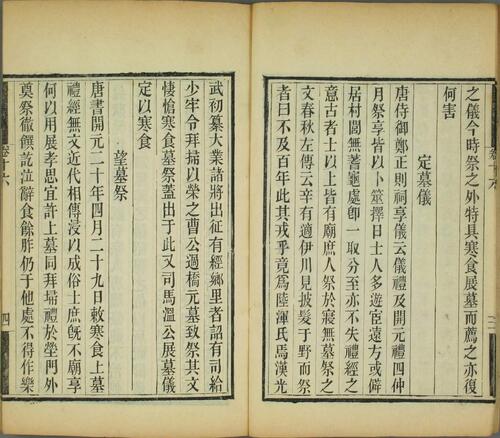 之儀今時祭之外特具寒食展墓而薦之亦復
何害
定墓儀
唐侍御鄭正則祠享儀云儀禮及開元禮四仲
月祭享皆以卜筮擇日士人多遊宦遠方或僻
居村閭無蓍龜處即一取分至亦不失禮經之
意古者士以上皆有廟庶人祭於寢無墓祭之
文春秋左傳云辛有適伊川見披髮于野而祭
者曰不及百年此其戎乎竟爲陸渾氏焉漢光
卷十六
三
武初纂大業諸將出征有經鄉里者詔有司給
少牢令拜掃以榮之曹公過橋元墓致祭其文
悽愴寒食墓祭蓋出于此又司馬溫公展墓儀
定以寒食
望墓祭
唐書開元二十年四月二十九日敕寒食上墓
禮經無文近代相傳浸以成俗士庶旣不廟享
何以用展孝思宜許上墓同拜埽禮於塋門外
奠祭徹饌訖泣辭食餘胙仍于他處不得作樂
卷十六
四